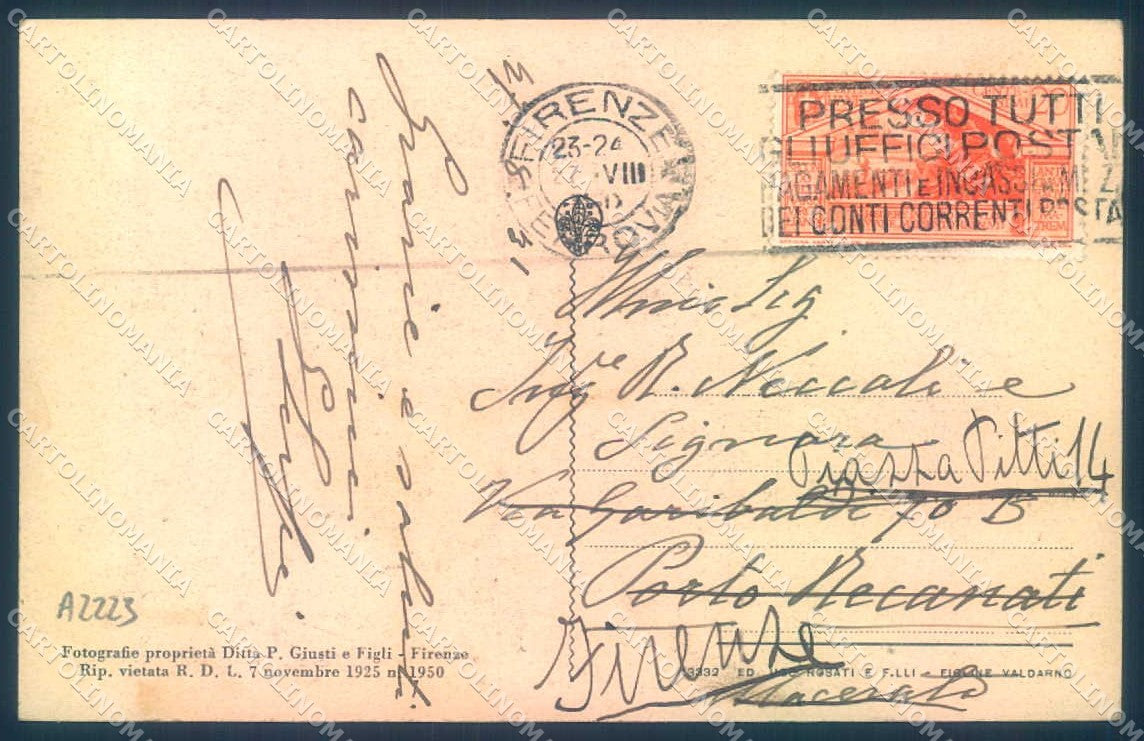 FIRENZE
23-24
VIII
FERROVIA
PRESSO TUTTI
GLI UFFICI POSTA
PAGAMENTI E INCASSI A MEZZ
DEI CONTI CORRENTI POSTA
Grazie e
Sig
Ing.re R. Neccali e
Signora
Piazza Pitti 14
Via Garibaldi 70 B
Porto Recanati
Firenze
Macerata
A2223
Fotografie proprietà Ditta P. Giusti e Figli - Firenze
Rip. vietata R. D. L. 7 novembre 1925 n. 1950
3332 ED. UGO ROSATI E F.LLI - FIGLINE VALDARNO
CARTOLINOMANIA